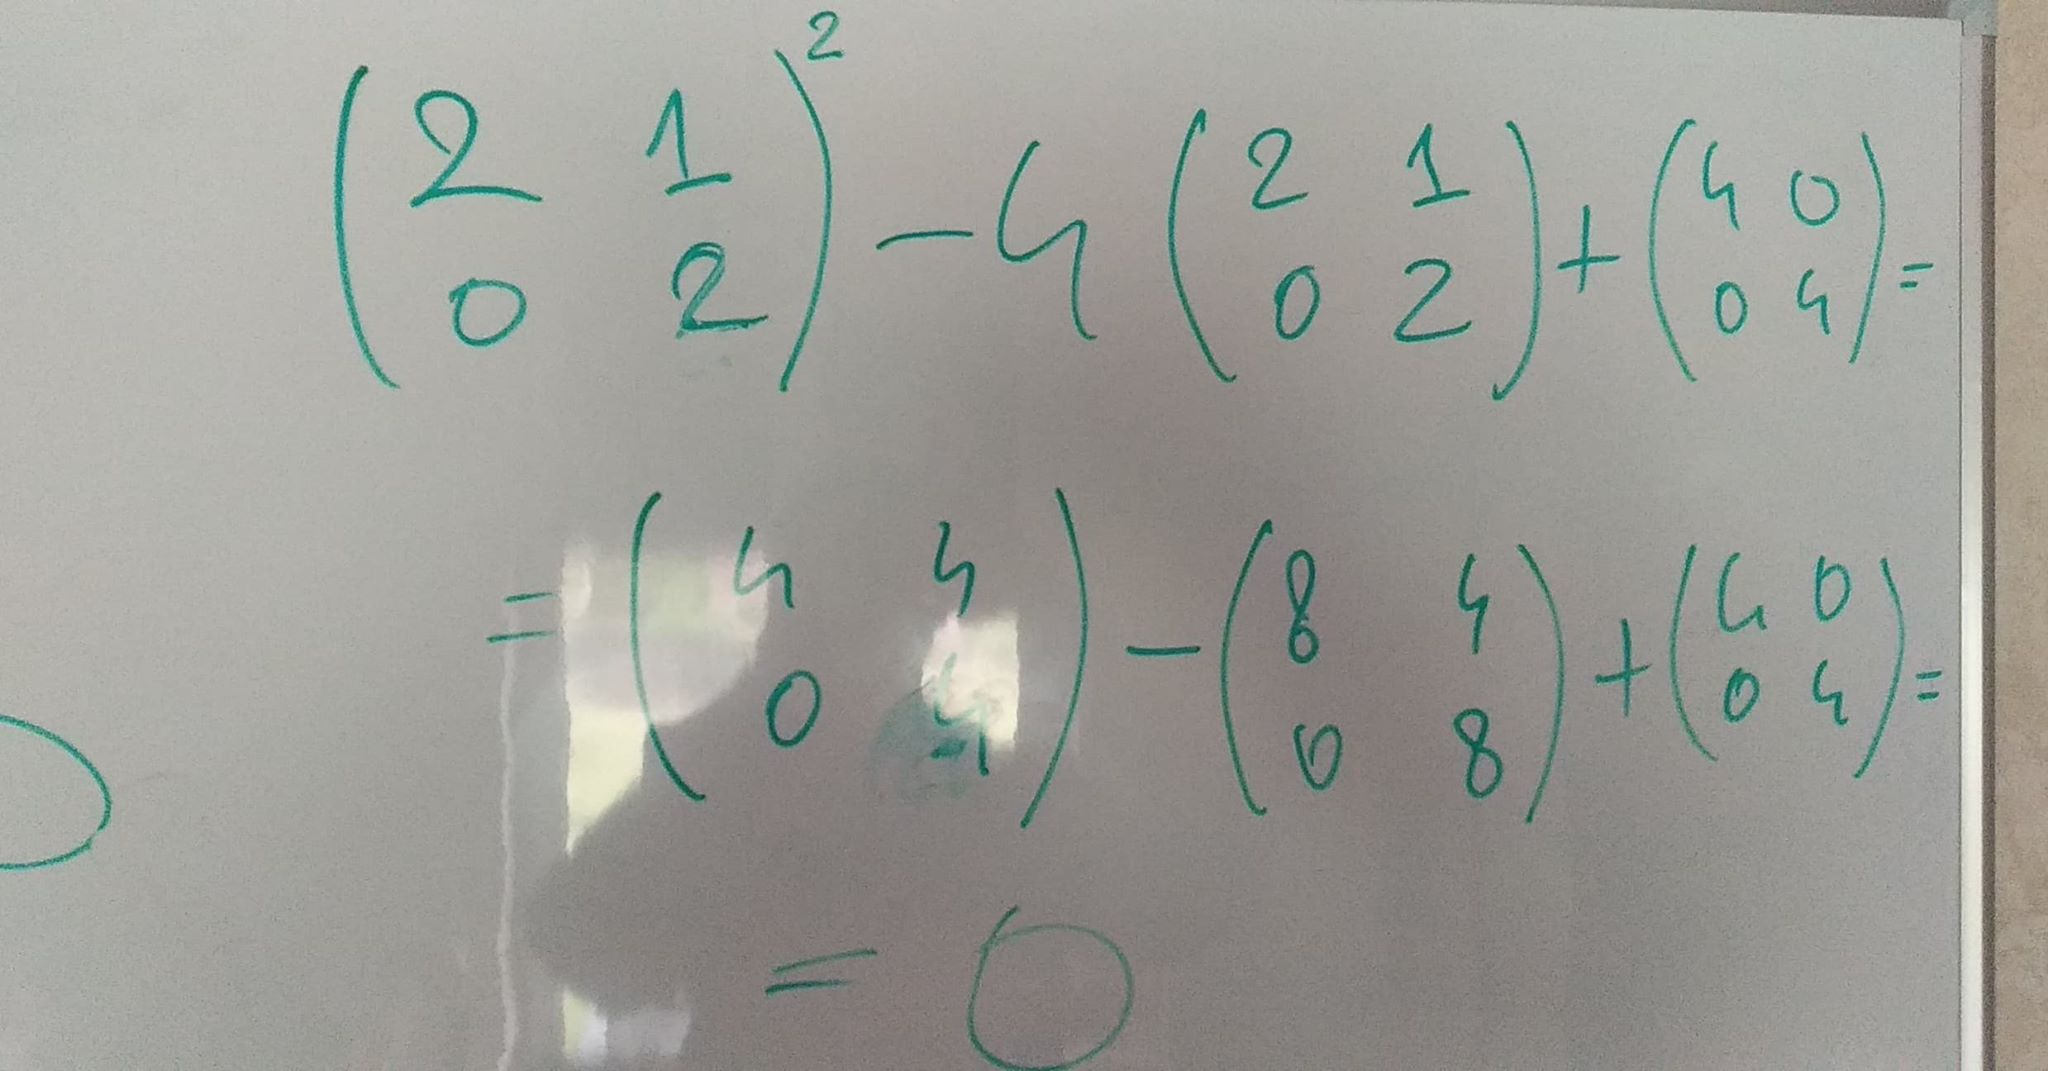 $\begin{pmatrix} 2 & 1 \\ 0 & 2 \end{pmatrix}^2 - 4 \begin{pmatrix} 2 & 1 \\ 0 & 2 \end{pmatrix} + \begin{pmatrix} 4 & 0 \\ 0 & 4 \end{pmatrix} =$
$= \begin{pmatrix} 4 & 4 \\ 0 & 4 \end{pmatrix} - \begin{pmatrix} 8 & 4 \\ 0 & 8 \end{pmatrix} + \begin{pmatrix} 4 & 0 \\ 0 & 4 \end{pmatrix} =$
$= 0$